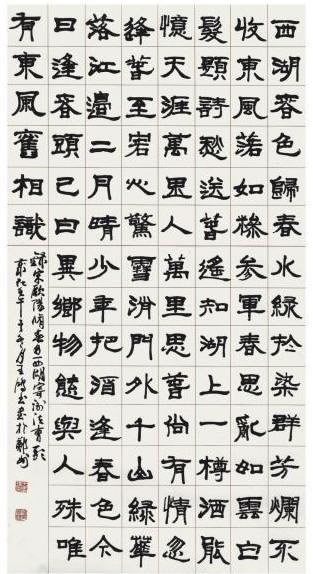 西湖春色歸春水綠於染群芳爛不
收東風落如糝參軍春思亂如雲白
髮題詩愁送春遙知湖上一樽酒能
憶天涯萬里人萬里思春尚有情忽
逢春至客心驚雪消門外千山綠華
落江邊二月晴少年把酒逢春色今
日逢春頭已白異鄉物態與人殊唯
有東風舊相識
錄宋歐陽修春日西湖寄謝法曹歌
書於鄭州